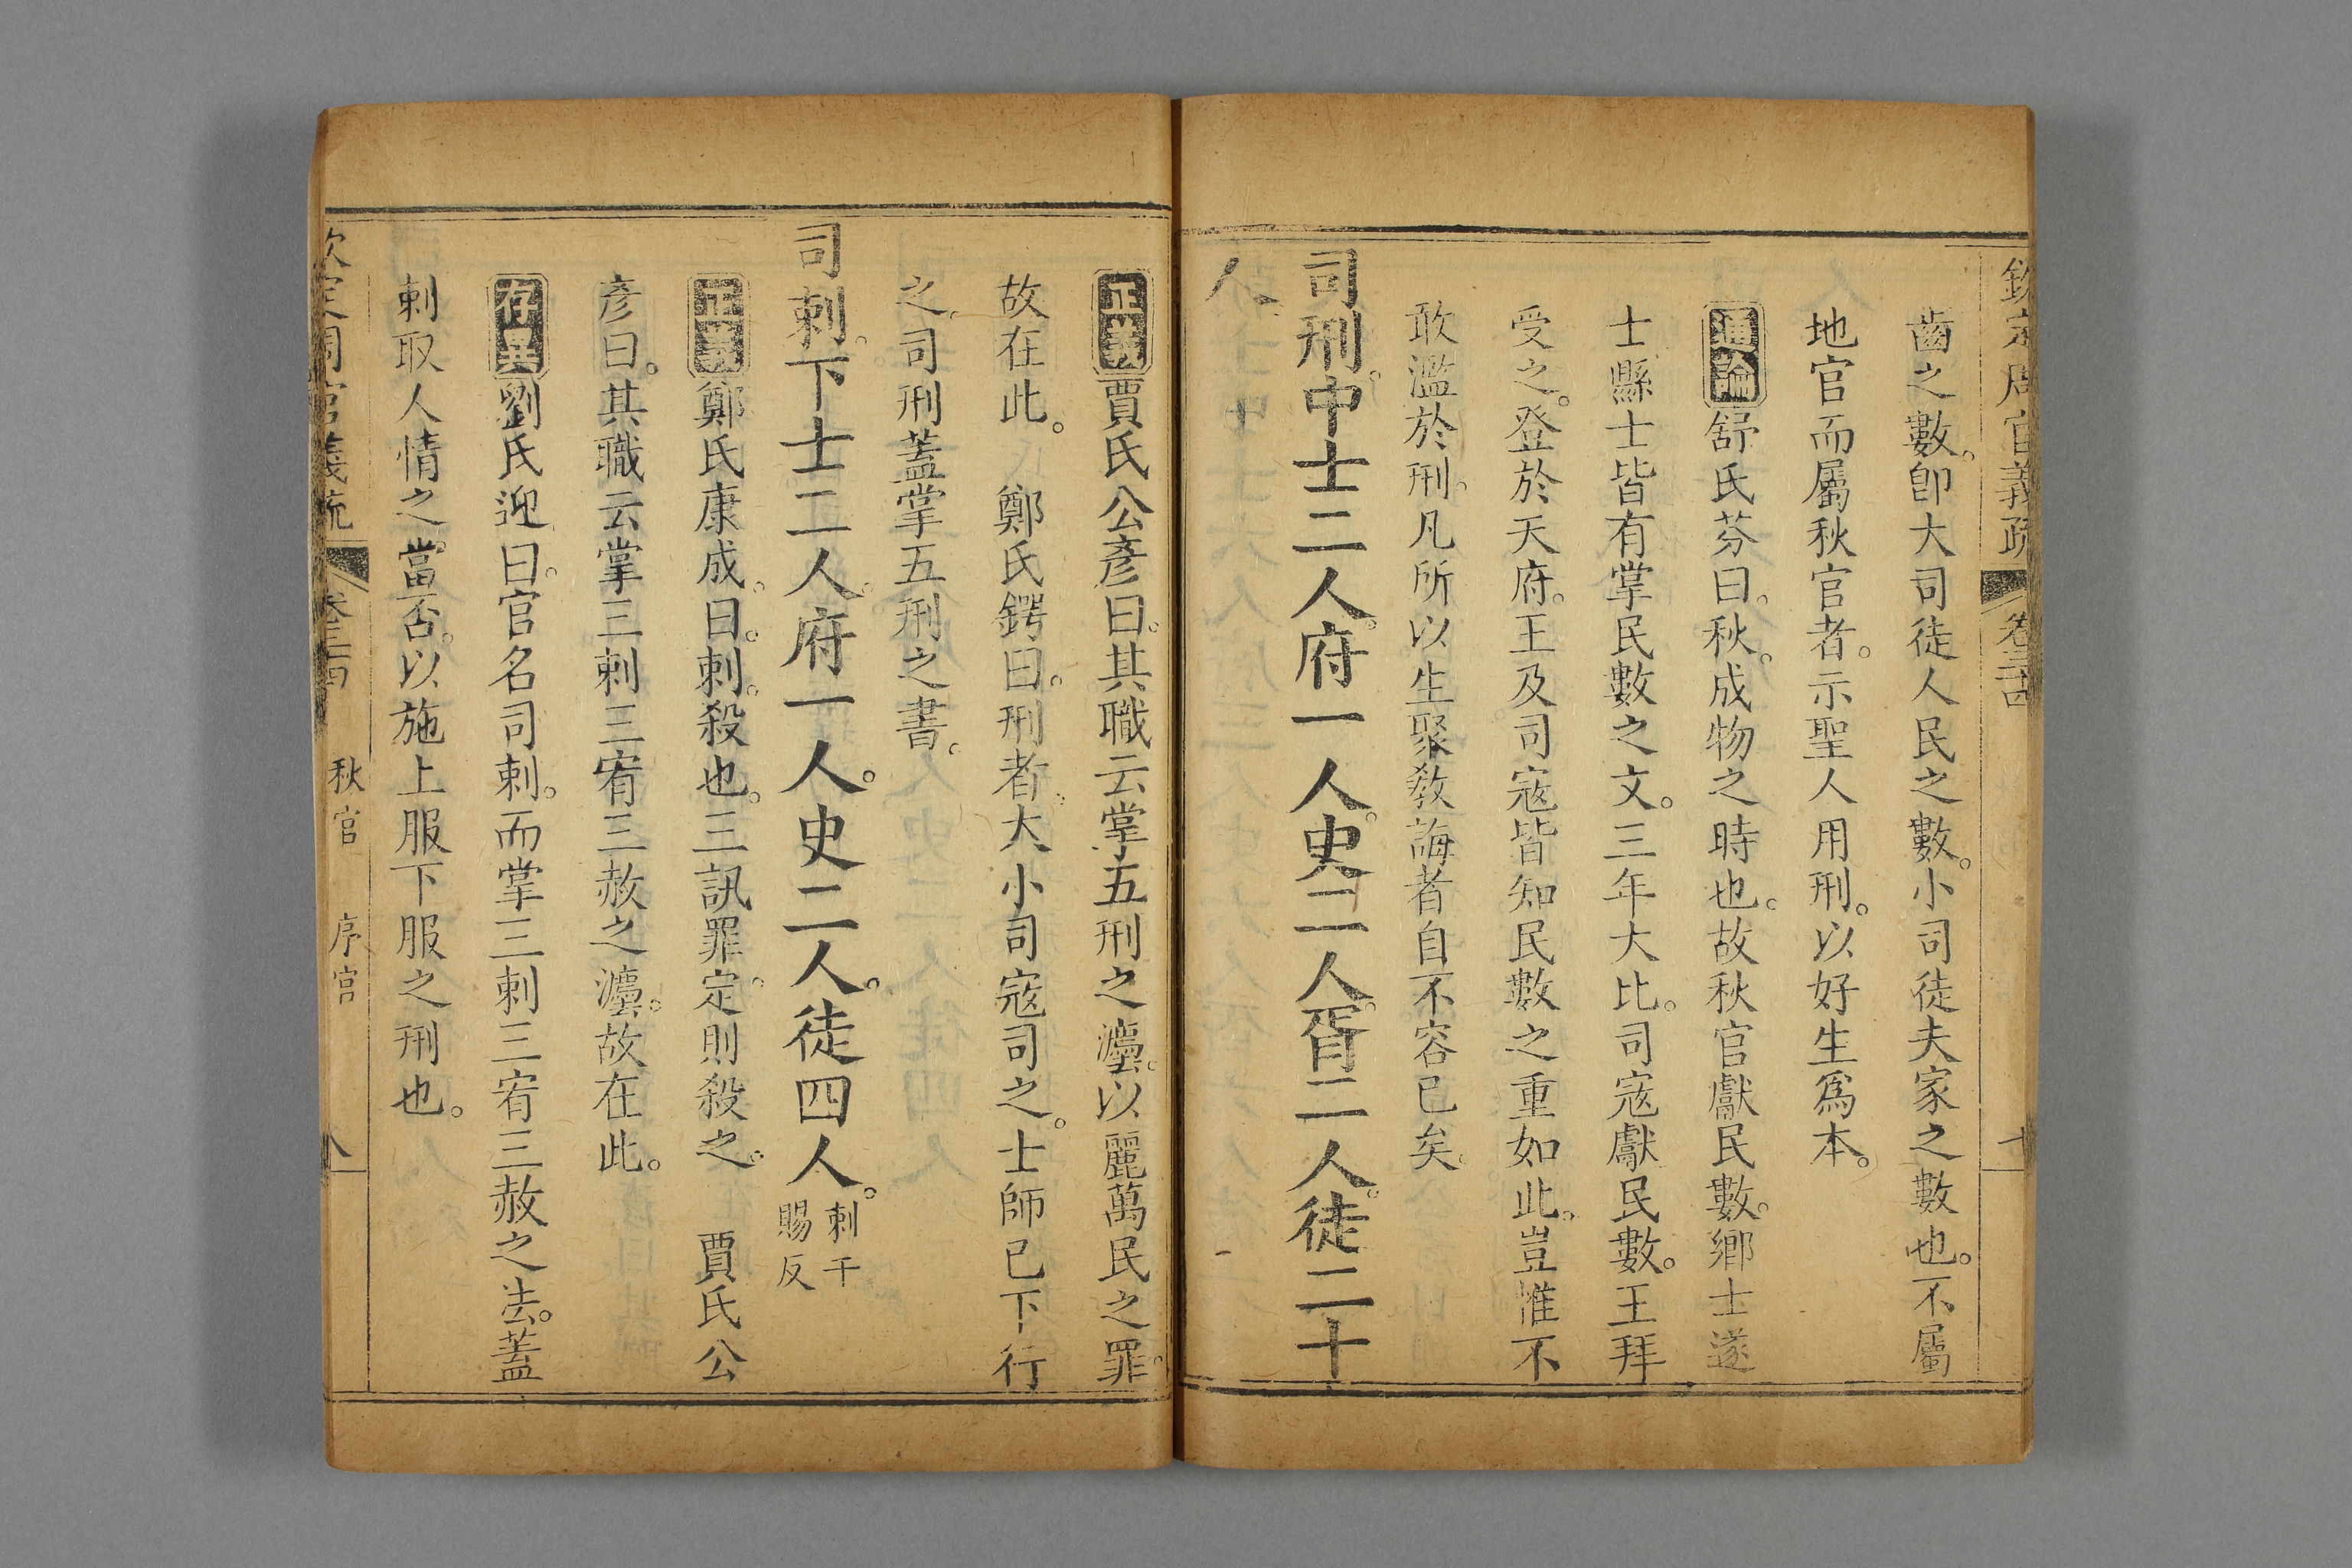 欽定周官義疏 卷三十四 七
齒之數。卽大司徒人民之數。小司徒夫家之數也。不屬
地官而屬秋官者。示聖人用刑。以好生爲本。
通論舒氏芬曰。秋。成物之時也。故秋官獻民數。鄉士遂
士縣士皆有掌民數之文。三年大比。司寇獻民數。王拜
受之。登於天府。王及司寇皆知民數之重如此。豈惟不
敢濫於刑。凡所以生聚教誨者自不容已矣。
司刑。中士二人。府一人。史二人。胥二人。徒二十
人。
正義賈氏公彥曰。其職云掌五刑之灋。以麗萬民之罪。
故在此。 鄭氏鍔曰。刑者。大小司寇司之。士師已下行
之。司刑蓋掌五刑之書。
司刺。下士二人。府一人。史二人。徒四人。刺千
賜反
正義鄭氏康成。曰。刺。殺也。三訊罪定。則殺之。 賈氏公
彥曰。其職云掌三刺三宥三赦之灋。故在此。
存異劉氏迎曰。官名司刺。而掌三刺三宥三赦之法。蓋
刺取人情之當否。以施上服下服之刑也。
欽定周官義疏 卷三十四 秋官 序官 八